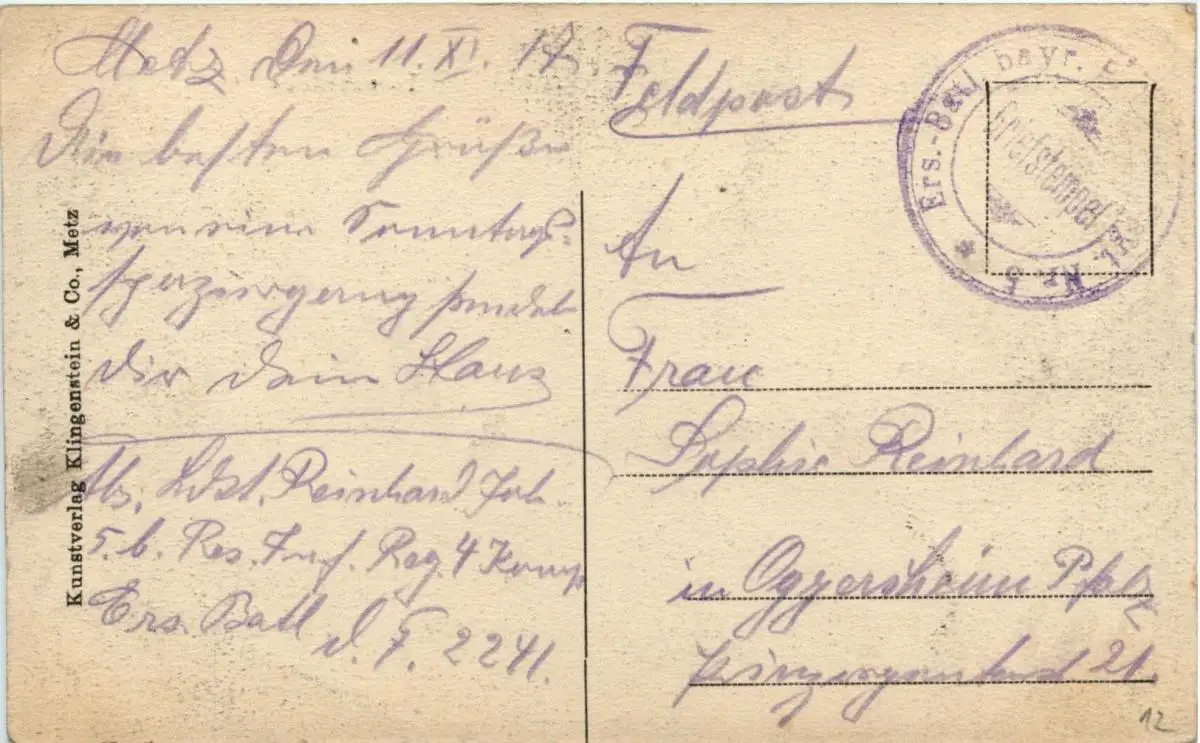 Metz den 11. XI. 17
Die besten Grüße
von eine Sonntags-
spaziergang sendet
dir dein Hans
Abs. Ldst. Reinhard Joh.
5. b. Res. Inf. Reg. 4 Komp
Ers. Batl d. F. 2241.
Kunstverlag Klingenstein & Co., Metz
Feldpost
Ers.-Batl bayr.
Nr. 5
Briefstempel
An
Frau
Sophie Reinhard
in Oggersheim Pfalz
21.
12